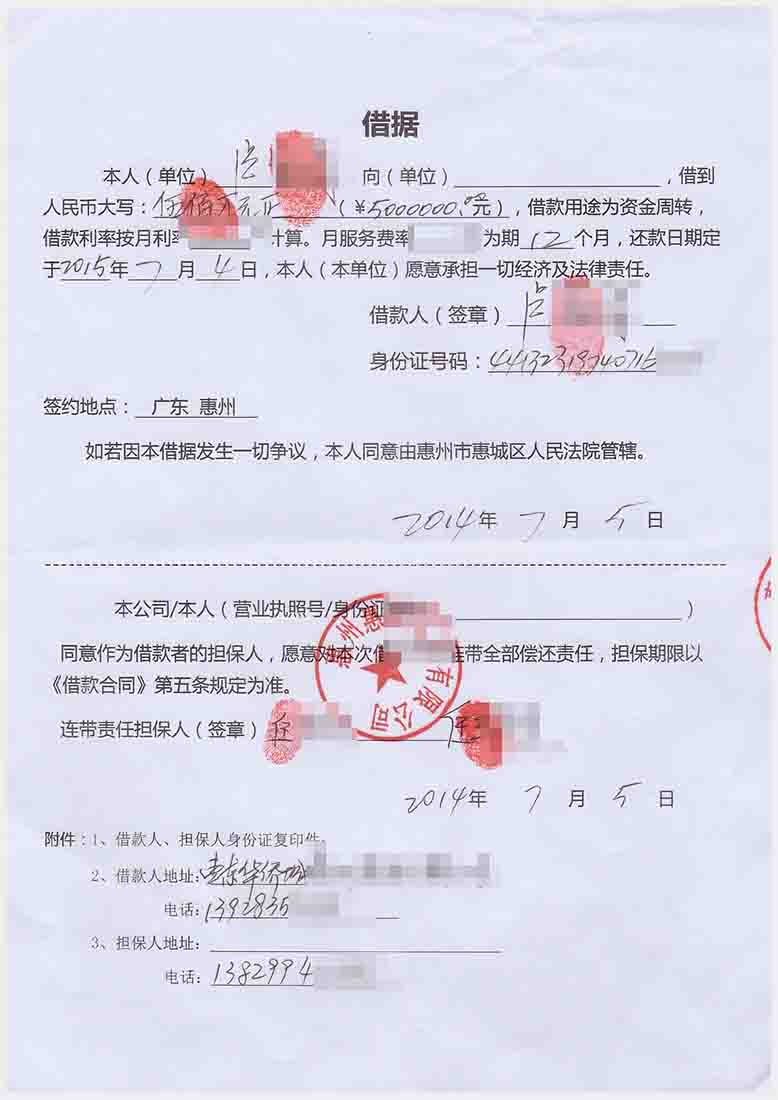 借据
本人（单位） 向（单位） ，借到
人民币大写：伍佰万元正（¥5000000.00元），借款用途为资金周转，
借款利率按月利率 计算。月服务费率 为期12个月，还款日期定
于2015年7月4日，本人（本单位）愿意承担一切经济及法律责任。
借款人（签章）
身份证号码：44132319740716
签约地点： 广东 惠州
如若因本借据发生一切争议，本人同意由惠州市惠城区人民法院管辖。
2014年7月5日
本公司/本人（营业执照号/身份证 ）
同意作为借款者的担保人，愿意对本次借 连带全部偿还责任，担保期限以
《借款合同》第五条规定为准。
惠州惠 有限公司
连带责任担保人（签章）
2014年7月5日
附件：1、借款人、担保人身份证复印件。
2、借款人地址：惠东华侨城
电话：1392835
3、担保人地址：
电话：1382994